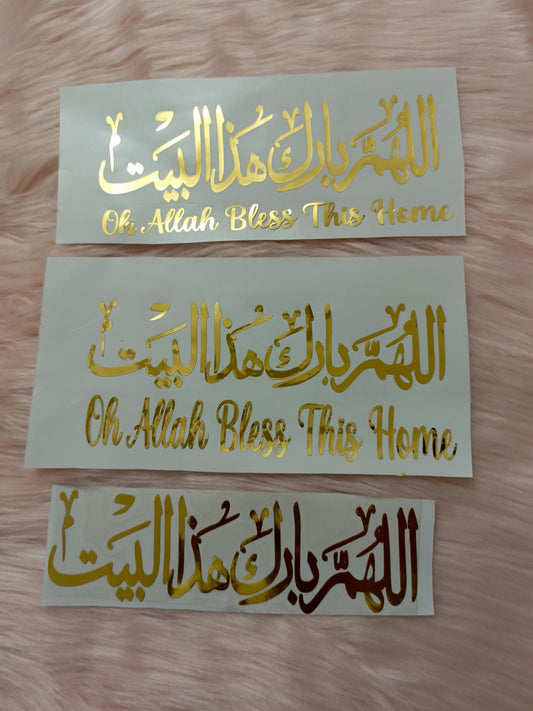 اللهم بارك هذا البيت
Oh Allah Bless This Home
اللهم بارك هذا البيت
Oh Allah Bless This Home
اللهم بارك هذا البيت